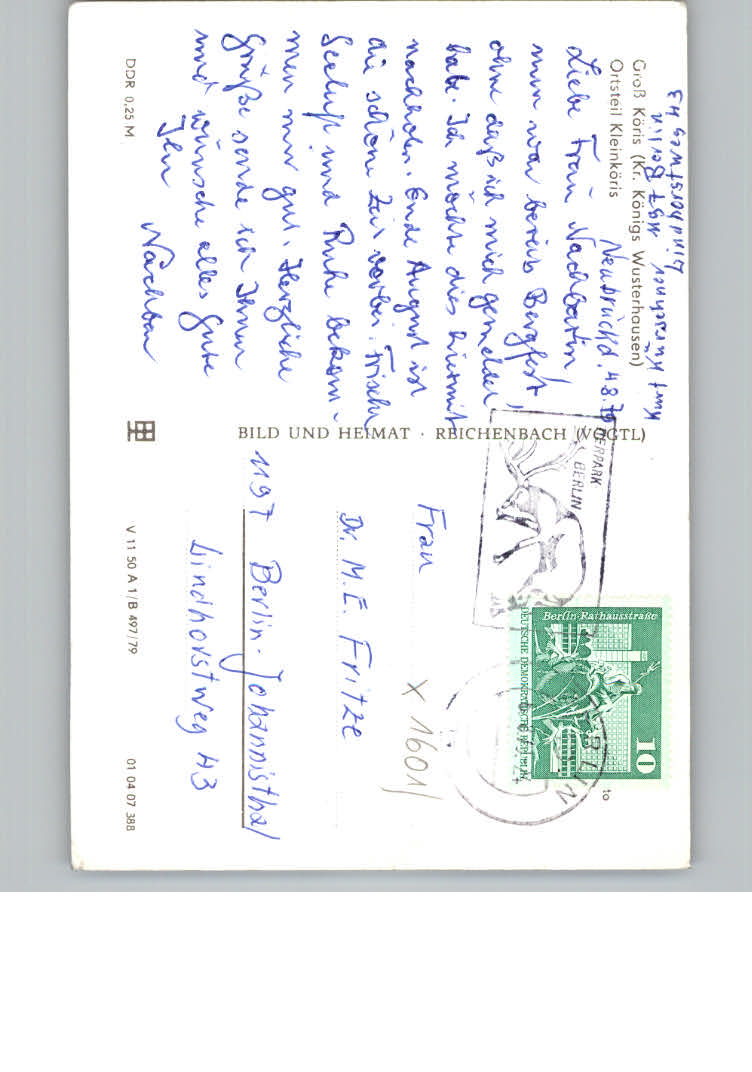 Groß Köris (Kr. Königs Wusterhausen)
Ortsteil Kleinköris
Neubrück d. 4.8.79
Liebe Frau Nachbarin!
nun war bereits Bergfest
ohne daß ich mich gemeldet
habe. Ich möchte dies hiermit
nachholen. Ende August ist
die schöne Zeit vorbei. Frische
Seeluft und Ruhe bekom-
men mir gut. Herzliche
Grüße sende ich Ihnen
und wünsche alles Gute
Ihr Nachbar
DDR 0,25 M
Kurt
1197 Berlin
Lindhorstweg 43
BILD UND HEIMAT · REICHENBACH (VOGTL)
TIERPARK
BERLIN
Berlin-Rathausstraße
DEUTSCHE DEMOKRATISCHE REPUBLIK
10
BERLIN
to
x 1601/
Frau
Dr. M. E. Fritze
1197 Berlin-Johannisthal
Lindhorstweg 43
V 11 50 A 1/B 497/79
01 04 07 388